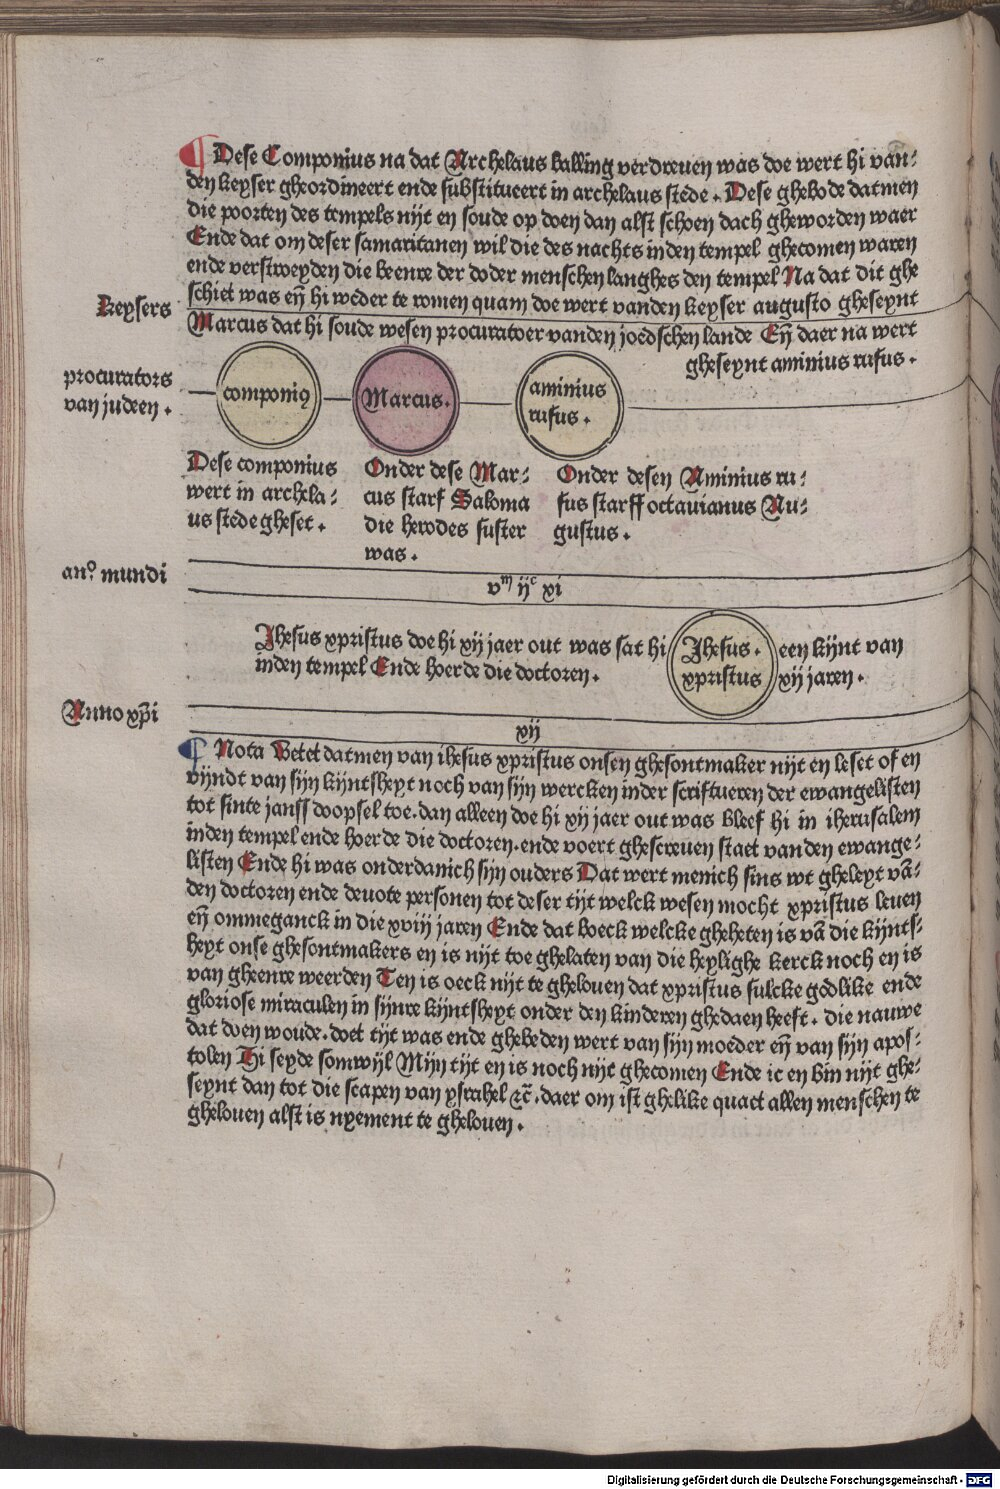 ¶ Dese Componius na dat Archelaus balling verdreuen was doe wert hi van⸗
den keyser gheordineert ende substitueert in archelaus stede. Dese ghebode datmen
die poorten des tempels nijt en soude op doen dan alst schoen dach gheworden waer
Ende dat om deser samaritanen wil die des nachts inden tempel ghecomen waren
ende verstroeyden die beenre der doder menschen langhes den tempel Na dat dit ghe
schiet was eñ hi weder te romen quam doe wert vanden keyser augusto gheseynt
keysers
Marcus dat hi soude wesen procuratoer vanden joedschen lande Eñ daer na wert
gheseynt aminius rufus.
procurators
van judeen.
componiꝰ
Marcus.
aminius
rufus.
Dese componius
wert in archela⸗
us stede gheset.
Onder dese Mar⸗
cus starf Saloma
die herodes suster
was.
Onder desen Aminius ru⸗
fus starff octauianus Au⸗
gustus.
an.º mundi
vᵐ ijᶜ xi
Jhesus xpristus doe hi xij jaer out was sat hi
inden tempel Ende hoerde die doctoren.
Jhesus.
xpristus
een kijnt van
xij jaren.
Anno xp̄i
xij
¶ Nota Wetet datmen van ihesus xpristus onsen ghesontmaker nijt en leset of en
vijndt van sijn kijntsheyt noch van sijn wercken inder scriftueren der ewangelisten
tot sinte janss doopsel toe. dan alleen doe hi xij jaer out was bleef hi in iherusalem
inden tempel ende hoerde die doctoren. ende voert ghescreuen staet vanden ewange⸗
listen Ende hi was onderdanich sijn ouders Dat wert menich sins wt gheleyt vā⸗
den doctoren ende deuote personen tot deser tijt welck wesen mocht xpristus leuen
eñ ommeganck in die xviij jaren Ende dat boeck welcke gheheten is vā die kijnts⸗
heyt onse ghesontmakers en is nijt toe ghelaten van die heylighe kerck noch en is
van gheenre weerden Ten is oeck nijt te ghelouen dat xpristus sulcke godlike ende
gloriose miraculen in sijnre kijntsheyt onder den kinderen ghedaen heeft. die nauwe
dat doen woude. doet tijt was ende ghebeden wert van sijn moeder eñ van sijn apos⸗
tolen Hi seyde somwijl Mijn tijt en is noch nijt ghecomen Ende ic en bin nijt ghe⸗
seynt dan tot die scapen van ysrahel ꝛc̄. daer om ist ghelike quact allen menschen te
ghelouen alst is nyement te ghelouen.
Digitalisierung gefördert durch die Deutsche Forschungsgemeinschaft - DFG